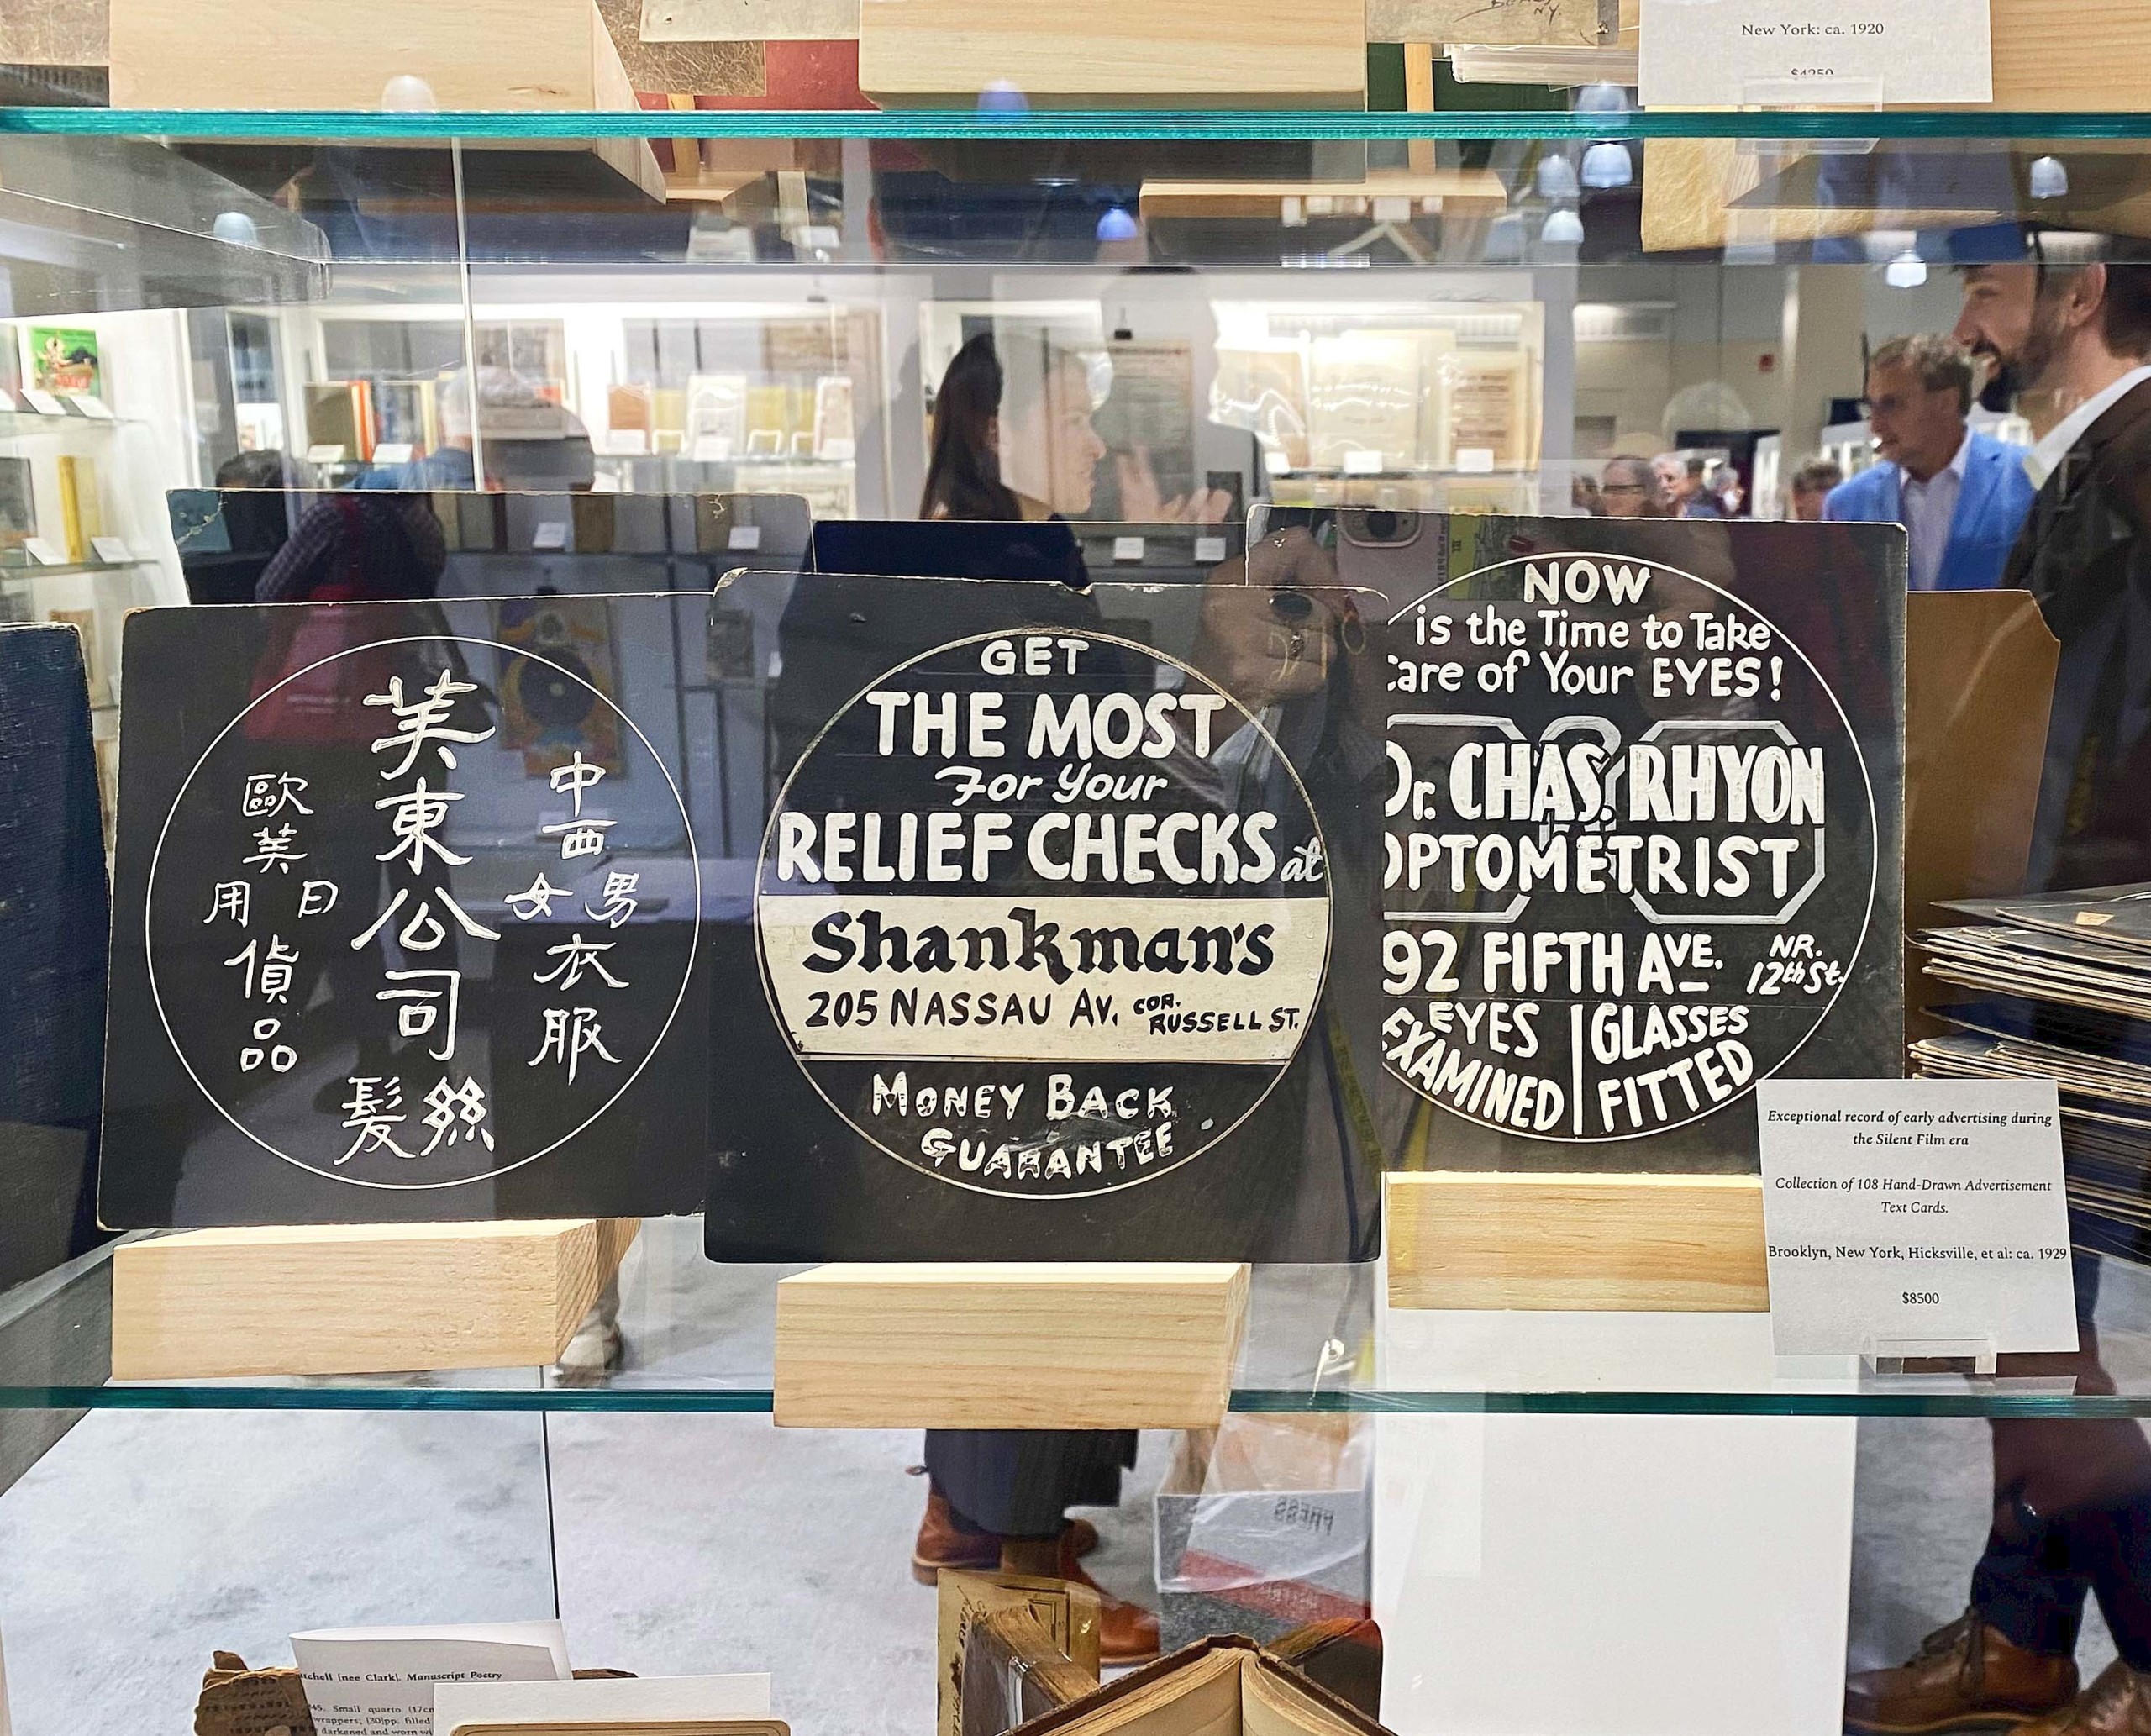 New York: ca. 1920
中西男女衣服
美東公司
絲髮
歐美日用貨品
GET
THE MOST
For Your
RELIEF CHECKS at
Shankman's
205 NASSAU AV. COR. RUSSELL ST.
MONEY BACK
GUARANTEE
NOW
is the Time to Take
Care of Your EYES!
Dr. CHAS. RHYON
OPTOMETRIST
92 FIFTH AVE. NR. 12th St.
EYES EXAMINED
GLASSES FITTED
Exceptional record of early advertising during
the Silent Film era
Collection of 108 Hand-Drawn Advertisement
Text Cards.
Brooklyn, New York, Hicksville, et al: ca. 1929
$8500
PRESS
[nee Clark]. Manuscript Poetry
Small quarto (17cm
wrappers; [30]pp. filled
darkened and worn